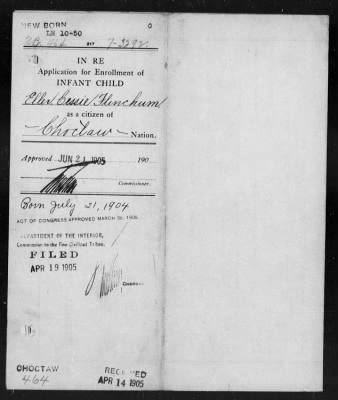 NEW BORN
LN 10-50
7-2292
IN RE
Application for Enrollment of
INFANT CHILD
Ellen Bessie Flinchum
as a citizen of
Choctaw Nation.
Approved JUN 21 1905 190
Commissioner.
Born July 21, 1904
ACT OF CONGRESS APPROVED MARCH 3D, 1905.
DEPARTMENT OF THE INTERIOR,
Commission to the Five Civilized Tribes.
FILED
APR 19 1905
CHOCTAW
464
RECEIVED
APR 14 1905